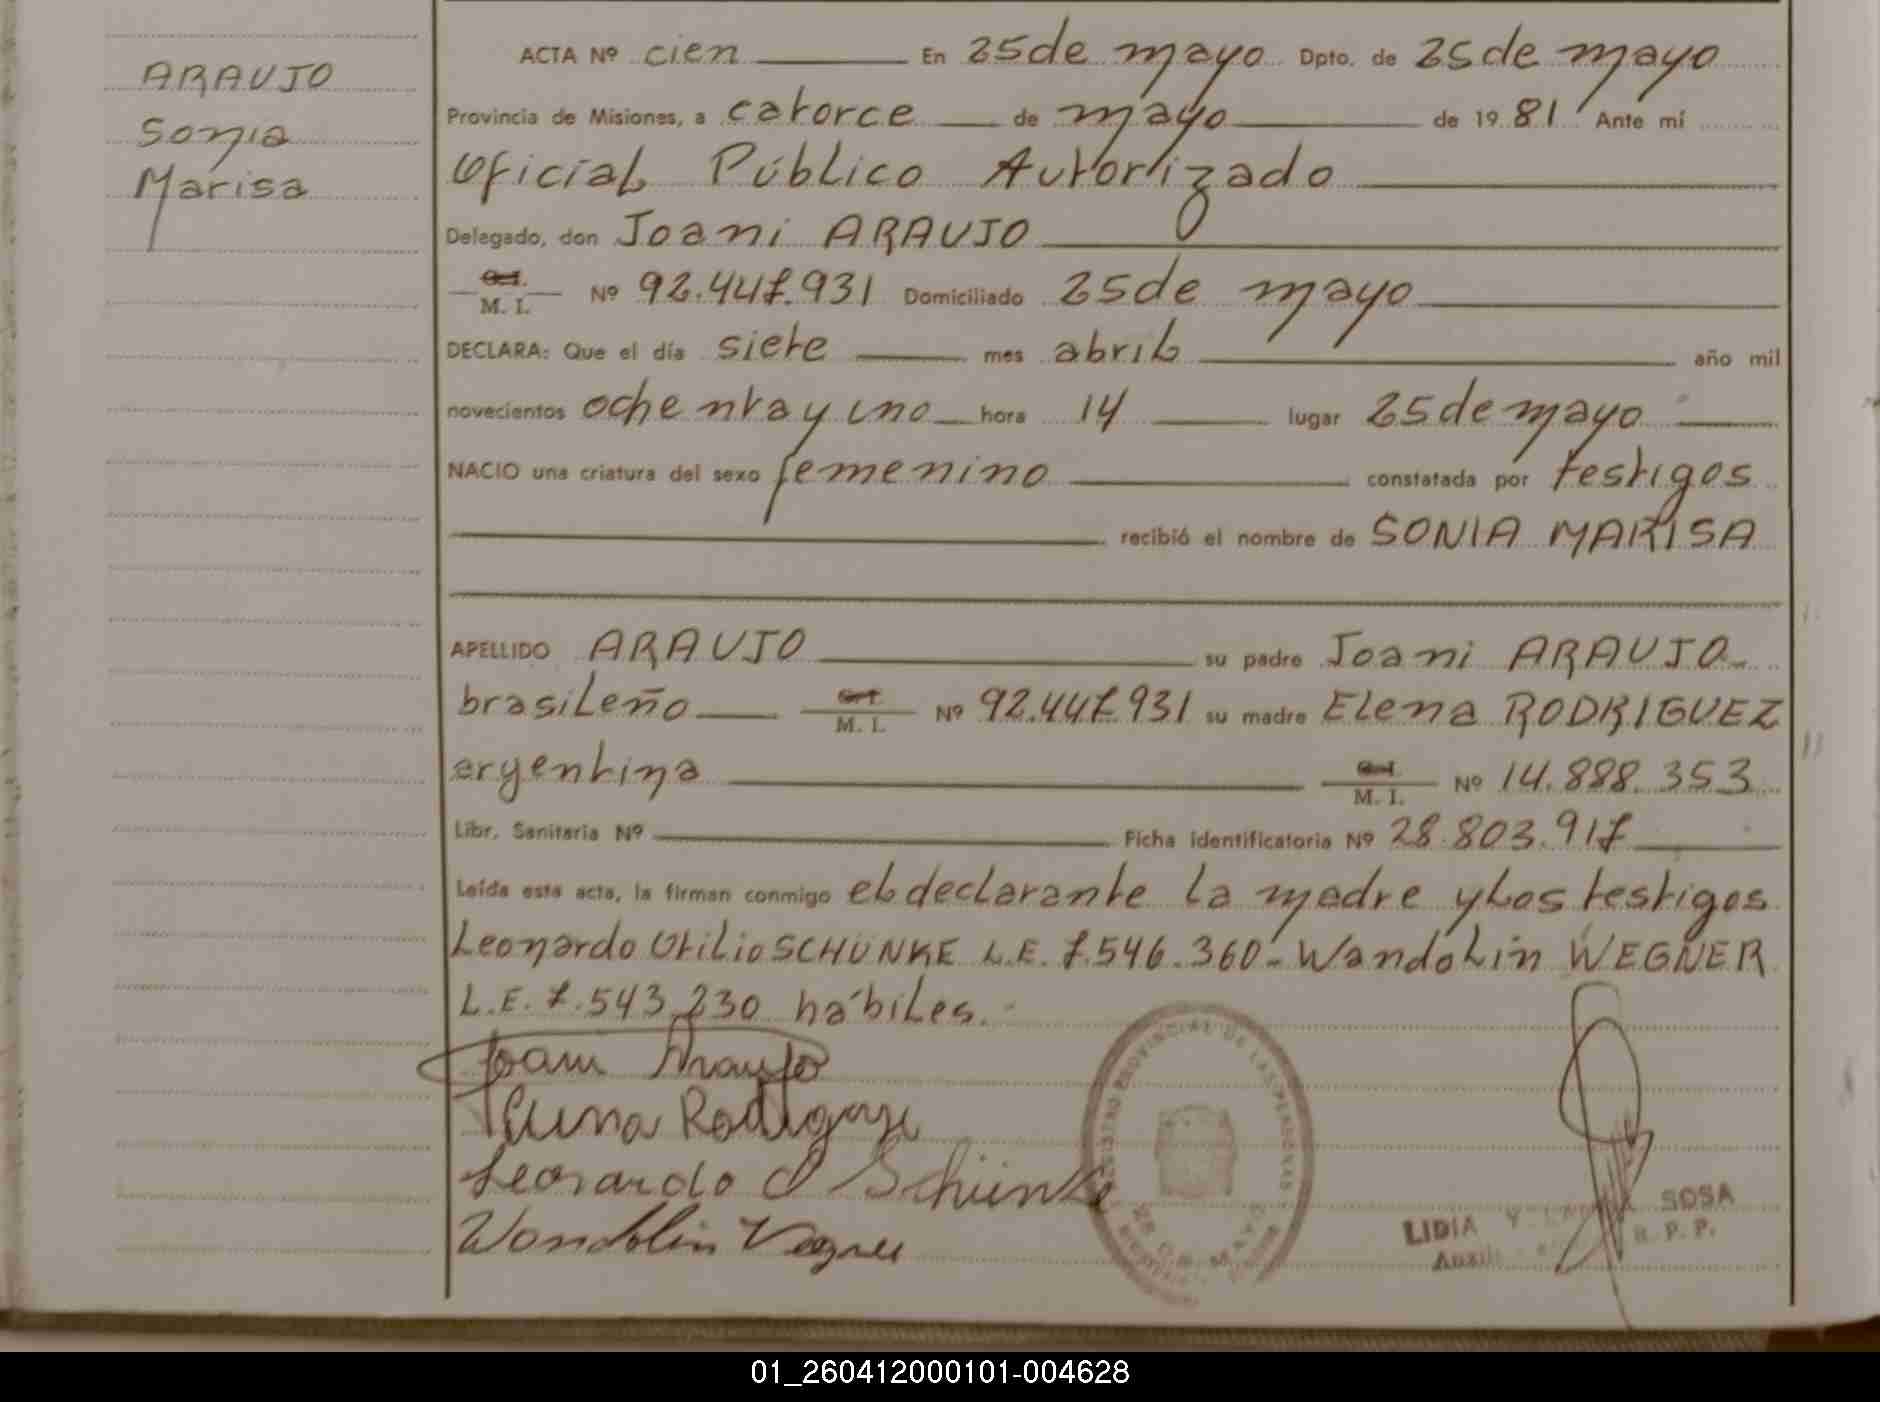 ARAUJO
Sonia
Marisa
ACTA Nº cien En 25 de mayo Dpto. de 25 de mayo
Provincia de Misiones, a catorce de mayo de 1981 Ante mí
Oficial Público Autorizado
Delegado, don Joani ARAUJO
M. I. Nº 92.447.931 Domiciliado 25 de mayo
DECLARA: Que el día siete mes abril año mil
novecientos ochenta y uno hora 14 lugar 25 de mayo
NACIO una criatura del sexo femenino constatada por testigos
recibió el nombre de SONIA MARISA
APELLIDO ARAUJO su padre Joani ARAUJO
brasileño M. I. Nº 92.447.931 su madre Elena RODRIGUEZ
argentina M. I. Nº 14.888.353
Libr. Sanitaria Nº Ficha identificatoria Nº 28.803.917
Leída esta acta, la firman conmigo el declarante la madre y los testigos
Leonardo Otilio SCHÜNKE L.E. 7.546.360- Wandolin WEGNER
L.E. 7.543.230 hábiles.
Joani Araujo
Elena Rodrigue
Leonardo O Schünke
Wondolin Vegner
REGISTRO PROVINCIAL DE LAS PERSONAS
25 DE MAYO
LIDIA SOSA
R. P. P.
01_260412000101-004628